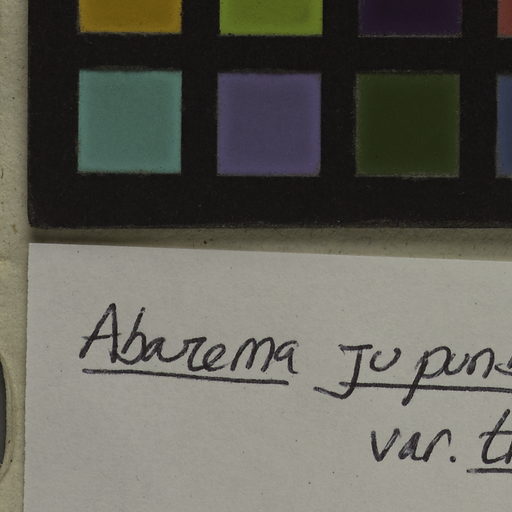 Abarema jupun
var. t